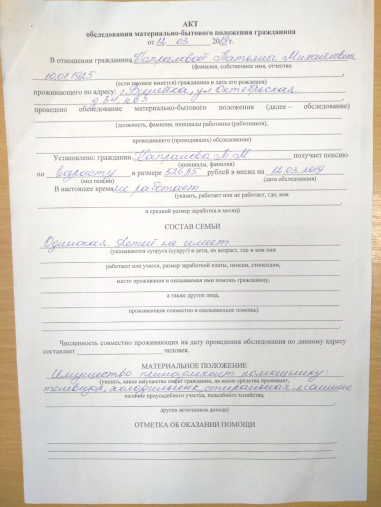 АКТ
обследования материально-бытового положения гражданина
от 12 03 2019г.
В отношении гражданина Татьяны Михайловны
(фамилия, собственное имя, отчество
10.01.1925
(если таковое имеется) гражданина и дата его рождения)
проживающего по адресу: ул. Октябрьская
проведено обследование материально-бытового положения (далее – обследование)
(должность, фамилия, инициалы работника (работников),
проводившего (проводивших) обследование)
Установлено: гражданин получает пенсию
(инициалы, фамилия)
по возрасту в размере рублей в месяц на 12.03.2019
(вид пенсии) (дата обследования)
В настоящее время не работает
(указать, работает или не работает, где, кем
и средний размер заработка в месяц)
СОСТАВ СЕМЬИ
Одинокая Детей не имеет
(указываются супруга (супруг) и дети, их возраст, где и кем они
работают или учатся, размер заработной платы, пенсии, стипендии,
место проживания и оказываемая ими помощь гражданину,
а также другие лица,
проживающие совместно и оказывающие помощь)
Численность совместно проживающих на дату проведения обследования по данному адресу
составляют человек.
МАТЕРИАЛЬНОЕ ПОЛОЖЕНИЕ
Имущество принадлежит
(указать, какое имущество имеет гражданин, на какие средства проживает,
телевизор, холодильник, стиральная машина
наличие приусадебного участка, подсобного хозяйства,
других источников дохода)
ОТМЕТКА ОБ ОКАЗАНИИ ПОМОЩИ